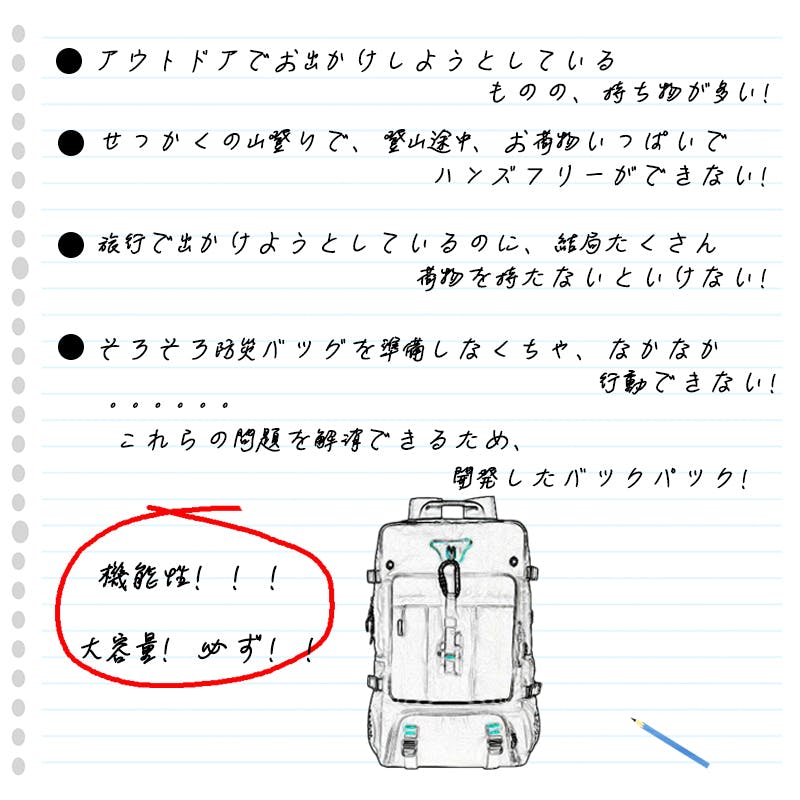 ● アウトドアでお出かけしようとしている
ものの、持ち物が多い!
● せっかくの山登りで、登山途中、お荷物いっぱいで
ハンズフリーができない!
● 旅行で出かけようとしているのに、結局たくさん
荷物を持たないといけない!
● そろそろ防災バッグを準備しなくちゃ、なかなか
行動できない!
。。。。。。
これらの問題を解決できるため、
開発したバックパック!
機能性!!!
大容量! 必ず!!